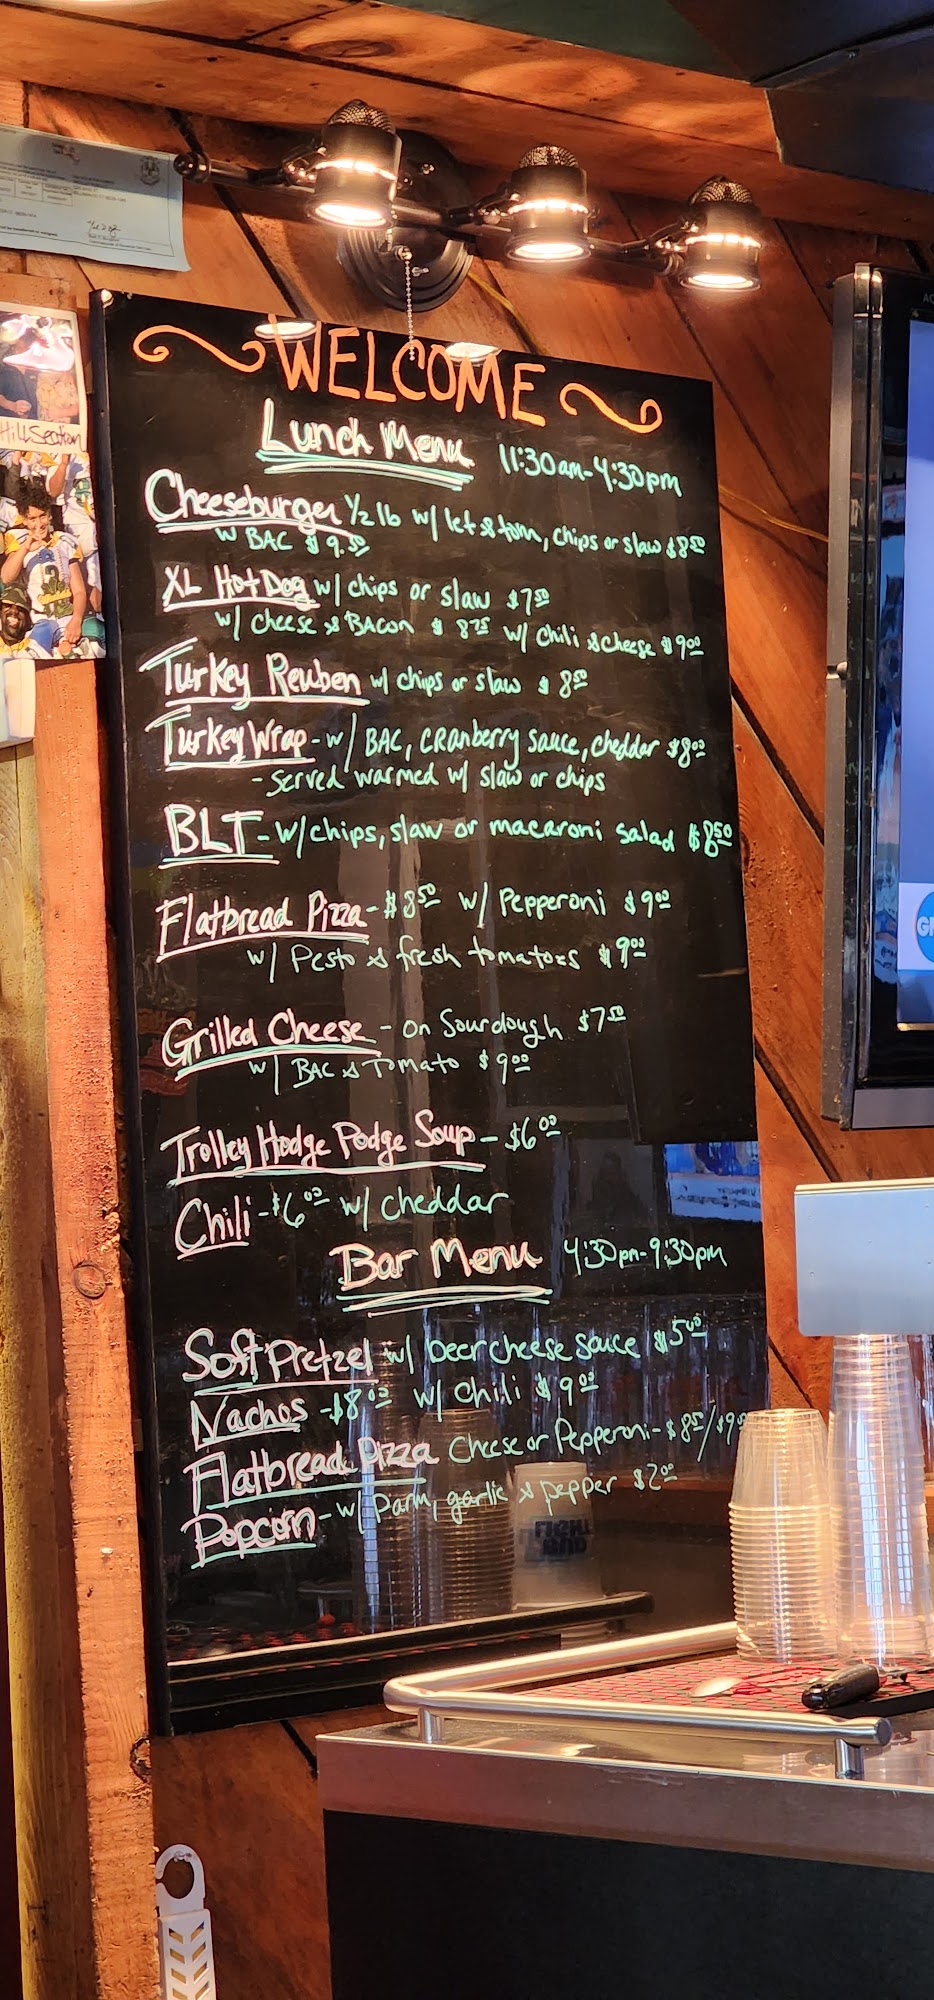 WELCOME
Lunch Menu 11:30am-4:30pm
Cheeseburger 1/2 lb w/ let & tom, chips or slaw $8.50
w BAC $9.50
XL Hot Dog w/ chips or slaw $7.50
w/ cheese & BACon $8.75 w/ chili & cheese $9.00
Turkey Reuben w/ chips or slaw $8.50
Turkey Wrap - w/ BAC, CRANberry sauce, cheddar $8.00
- served warmed w/ slaw or chips
BLT - w/ chips, slaw or macaroni salad $8.50
Flatbread Pizza - $8.50 w/ Pepperoni $9.00
w/ Pesto & fresh tomatoes $9.00
Grilled Cheese - on Sourdough $7.50
w/ BAC & Tomato $9.00
Trolley Hodge Podge Soup - $6.00
Chili - $6.00 w/ cheddar
Bar Menu 4:30pm-9:30pm
Soft Pretzel w/ beer cheese sauce $5.00
Nachos - $8.00 w/ chili $9.00
Flatbread Pizza Cheese or Pepperoni - $8.50/$9.00
Popcorn - w/ parm, garlic & pepper $2.00
Hill Section